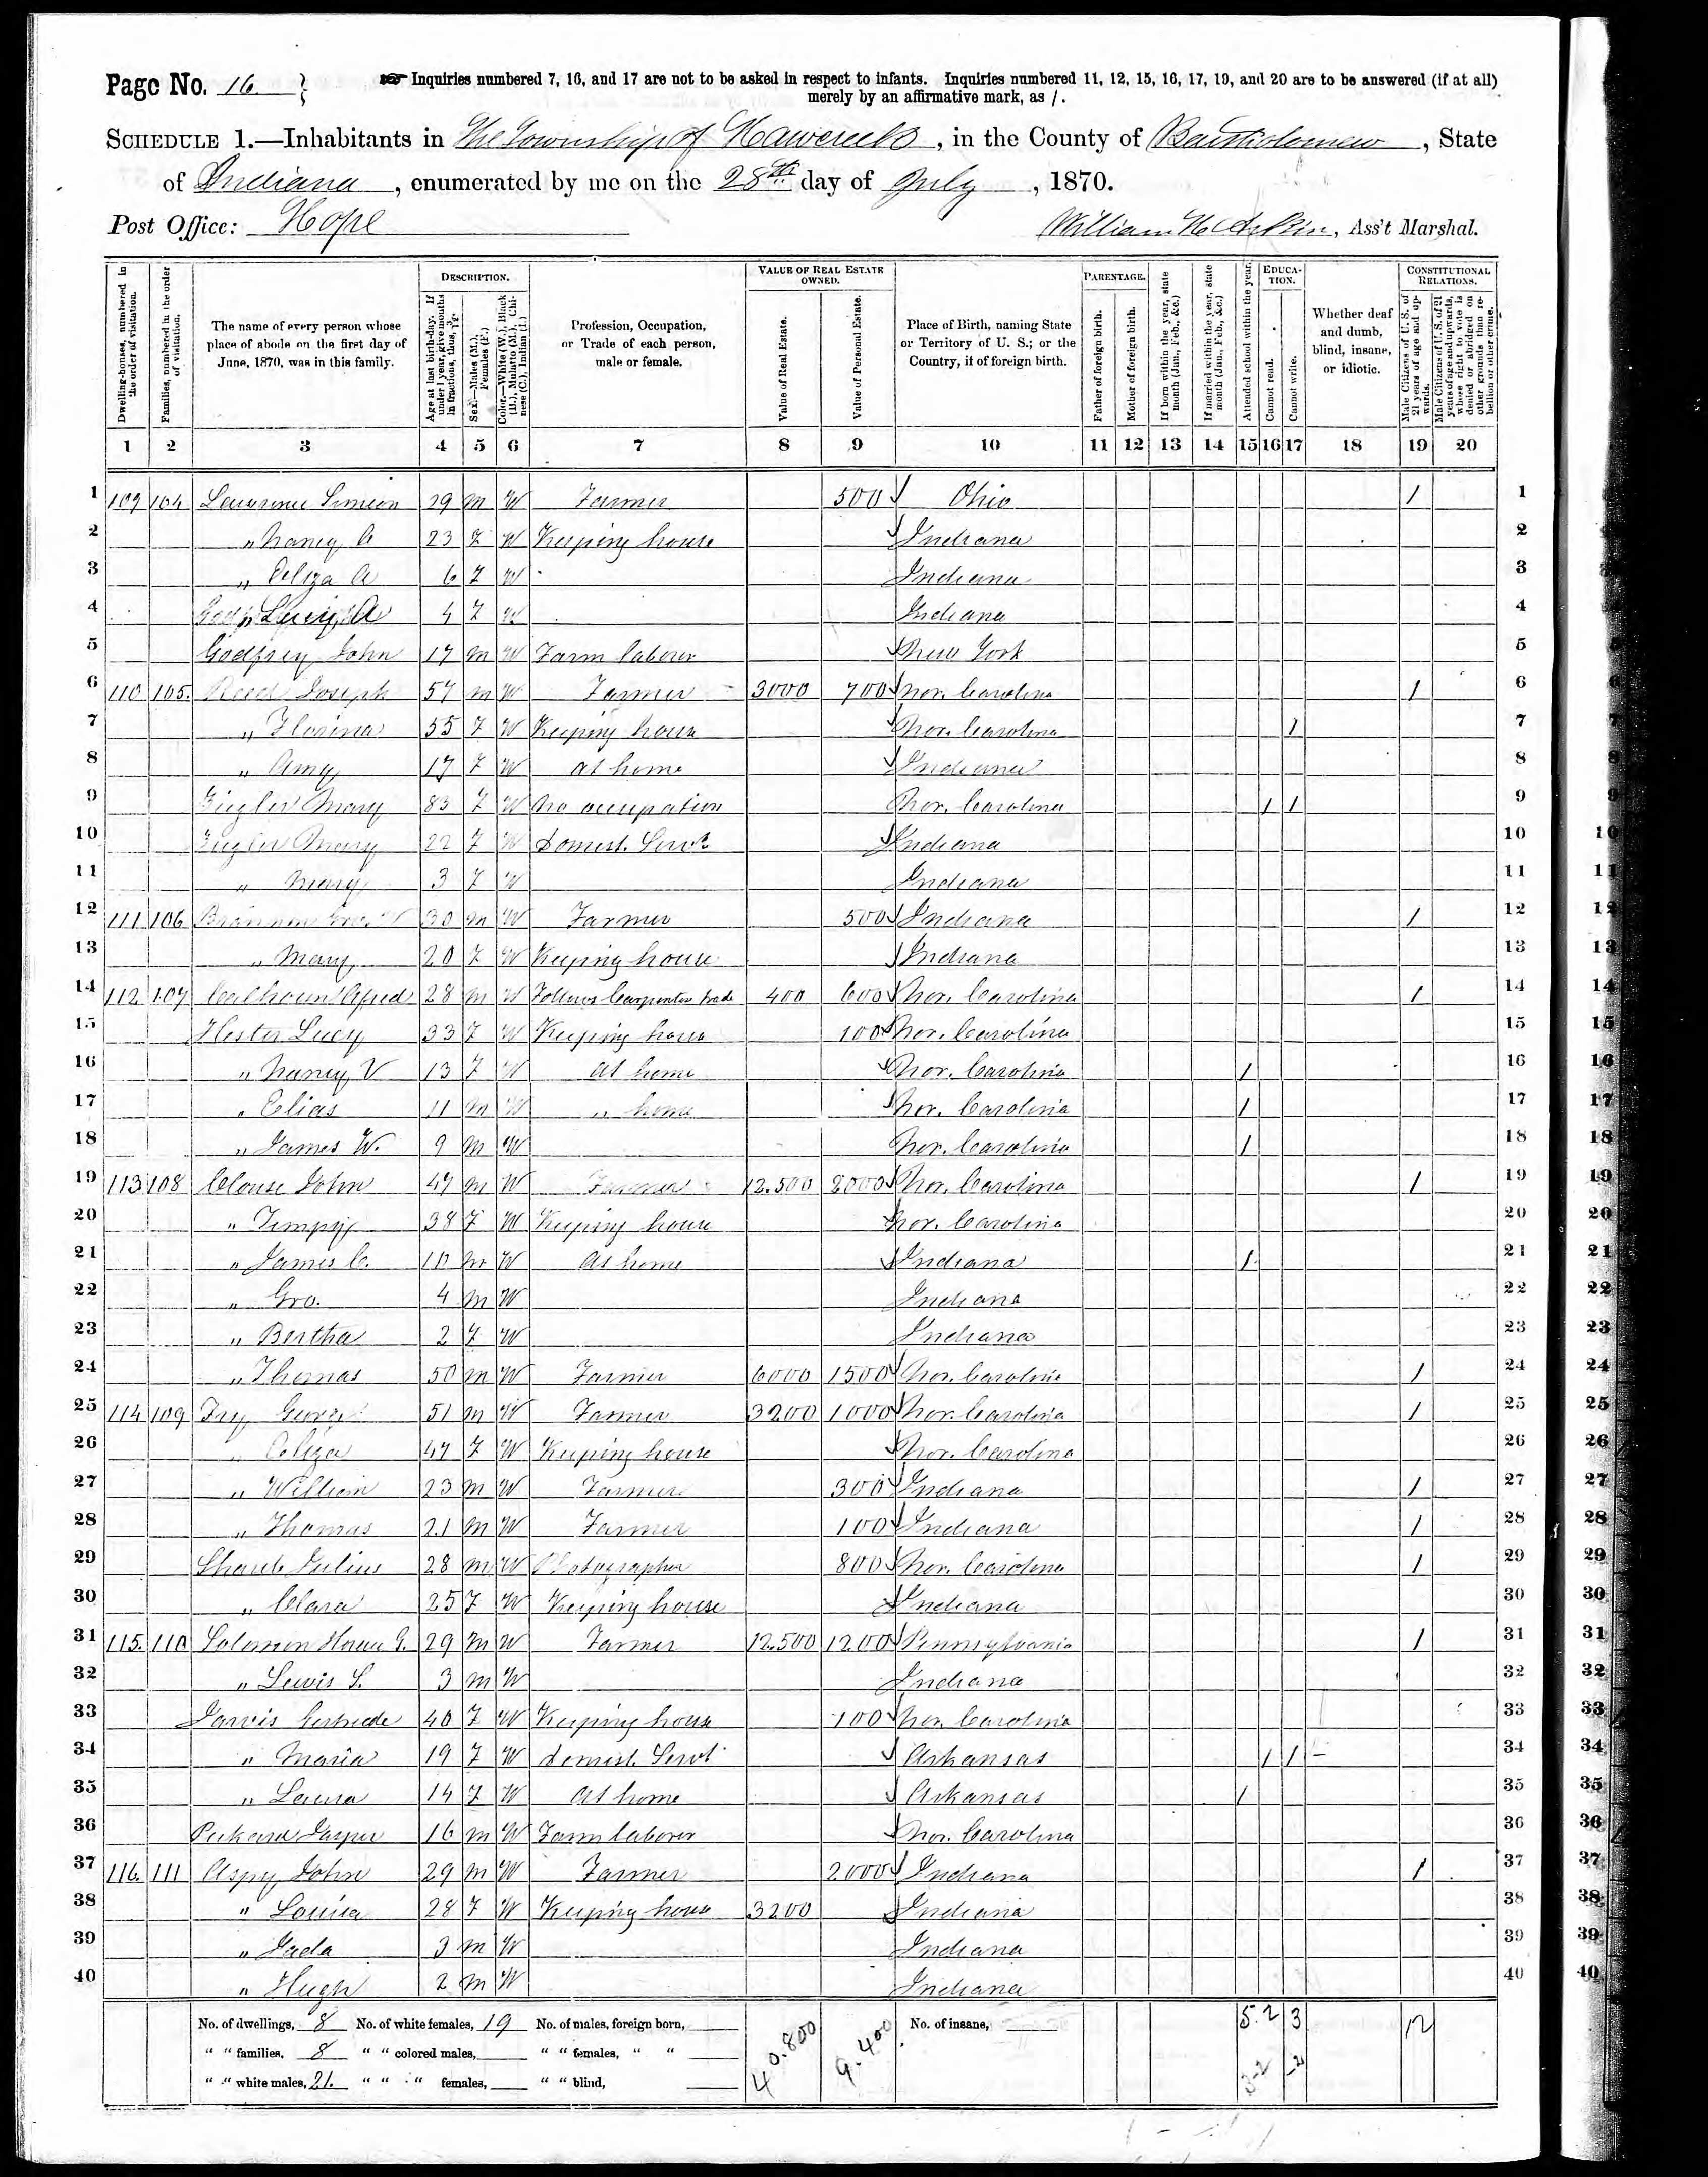 Page No. 16 }
Inquiries numbered 7, 16, and 17 are not to be asked in respect to infants. Inquiries numbered 11, 12, 15, 16, 17, 19, and 20 are to be answered (if at all)
merely by an affirmative mark, as /.
SCHEDULE 1.—Inhabitants in The Township of Hawcreek, in the County of Bartholomew, State
of Indiana, enumerated by me on the 28th day of July, 1870.
Post Office: Hope
William H, Ass't Marshal.
Dwelling-houses, numbered in the order of visitation.
Families, numbered in the order of visitation.
The name of every person whose place of abode on the first day of June, 1870, was in this family.
DESCRIPTION.
Age at last birth-day. If under 1 year, give months in fractions, thus, 3/12.
Sex.—Males (M.), Females (F.)
Color.—White (W.), Black (B.), Mulatto (M.), Chinese (C.), Indian (I.)
Profession, Occupation, or Trade of each person, male or female.
VALUE OF REAL ESTATE OWNED.
Value of Real Estate.
Value of Personal Estate.
Place of Birth, naming State or Territory of U. S.; or the Country, if of foreign birth.
PARENTAGE.
Father of foreign birth.
Mother of foreign birth.
If born within the year, state month (Jan., Feb., &c.)
If married within the year, state month (Jan., Feb., &c.)
EDUCATION.
Attended school within the year.
Cannot read.
Cannot write.
Whether deaf and dumb, blind, insane, or idiotic.
CONSTITUTIONAL RELATIONS.
Male Citizens of U. S. of 21 years of age and upwards.
Male Citizens of U. S. of 21 years of age and upwards, whose right to vote is denied or abridged on other grounds than rebellion or other crime.
1 2 3 4 5 6 7 8 9 10 11 12 13 14 15 16 17 18 19 20
1 109 104 Lawrence Simeon 29 m W Farmer 500 Ohio / 1
2 " Nancy C 23 F W Keeping house Indiana 2
3 " Eliza A 6 F W Indiana 3
4 " A 4 F W Indiana 4
5 Godfrey John 17 m W Farm laborer New York 5
6 110 105. Reed Joseph 57 m W Farmer 3000 700 Nor. Carolina / 6
7 " Florina 55 F W Keeping house Nor. Carolina / 7
8 " Amy 17 F W At home Indiana 8
9 Ziegler Mary 83 F W No occupation Nor. Carolina / / 9
10 Ziegler Mary 22 F W Domest. Servt. Indiana 10
11 " Mary 3 F W Indiana 11
12 111 106 30 m W Farmer 500 Indiana / 12
13 " Mary 20 F W Keeping house Indiana 13
14 112 107 Calhoun Alfred 28 m W Follows Carpenter trade 400 600 Nor. Carolina / 14
15 Hester Lucy 33 F W Keeping house 100 Nor. Carolina 15
16 " Nancy V 13 F W At home Nor. Carolina / 16
17 " Elias 11 m W " home Nor. Carolina / 17
18 " James W. 9 m W Nor. Carolina / 18
19 113 108 Clouse John 47 m W Farmer 12.500 2000 Nor. Carolina / 19
20 " Tempy 38 F W Keeping house Nor. Carolina 20
21 " James C. 10 m W At home Indiana / 21
22 " Geo. 4 m W Indiana 22
23 " Bertha 2 F W Indiana 23
24 " Thomas 50 m W Farmer 6000 1500 Nor. Carolina / 24
25 114 109 Fry George 51 m W Farmer 3200 1000 Nor. Carolina / 25
26 " Eliza 47 F W Keeping house Nor. Carolina 26
27 " William 23 m W Farmer 300 Indiana / 27
28 " Thomas 21 m W Farmer 100 Indiana / 28
29 Shaub Julius 28 m W Photographer 800 Nor. Carolina / 29
30 " Clara 25 F W Keeping house Indiana 30
31 115. 110 Solomon 29 m W Farmer 12.500 1200 Pennsylvania / 31
32 " Lewis S. 3 m W Indiana 32
33 Jarvis Gertrude 40 F W Keeping house 100 Nor. Carolina 33
34 " Maria 19 F W domest. Servt. Arkansas / / 34
35 " Laura 14 F W At home Arkansas / 35
36 Pickard Jasper 16 m W Farm laborer Nor. Carolina 36
37 116. 111 Aspy John 29 m W Farmer 2000 Indiana / 37
38 " Louisa 28 F W Keeping house 3200 Indiana 38
39 " 3 m W Indiana 39
40 " Hugh 2 m W Indiana 40
No. of dwellings, 8 No. of white females, 19 No. of males, foreign born, 40.800 9.400 No. of insane, 5 2 3 12
" " families, 8 " " colored males, " " females, " "
" " white males, 21. " " " females, " " blind,